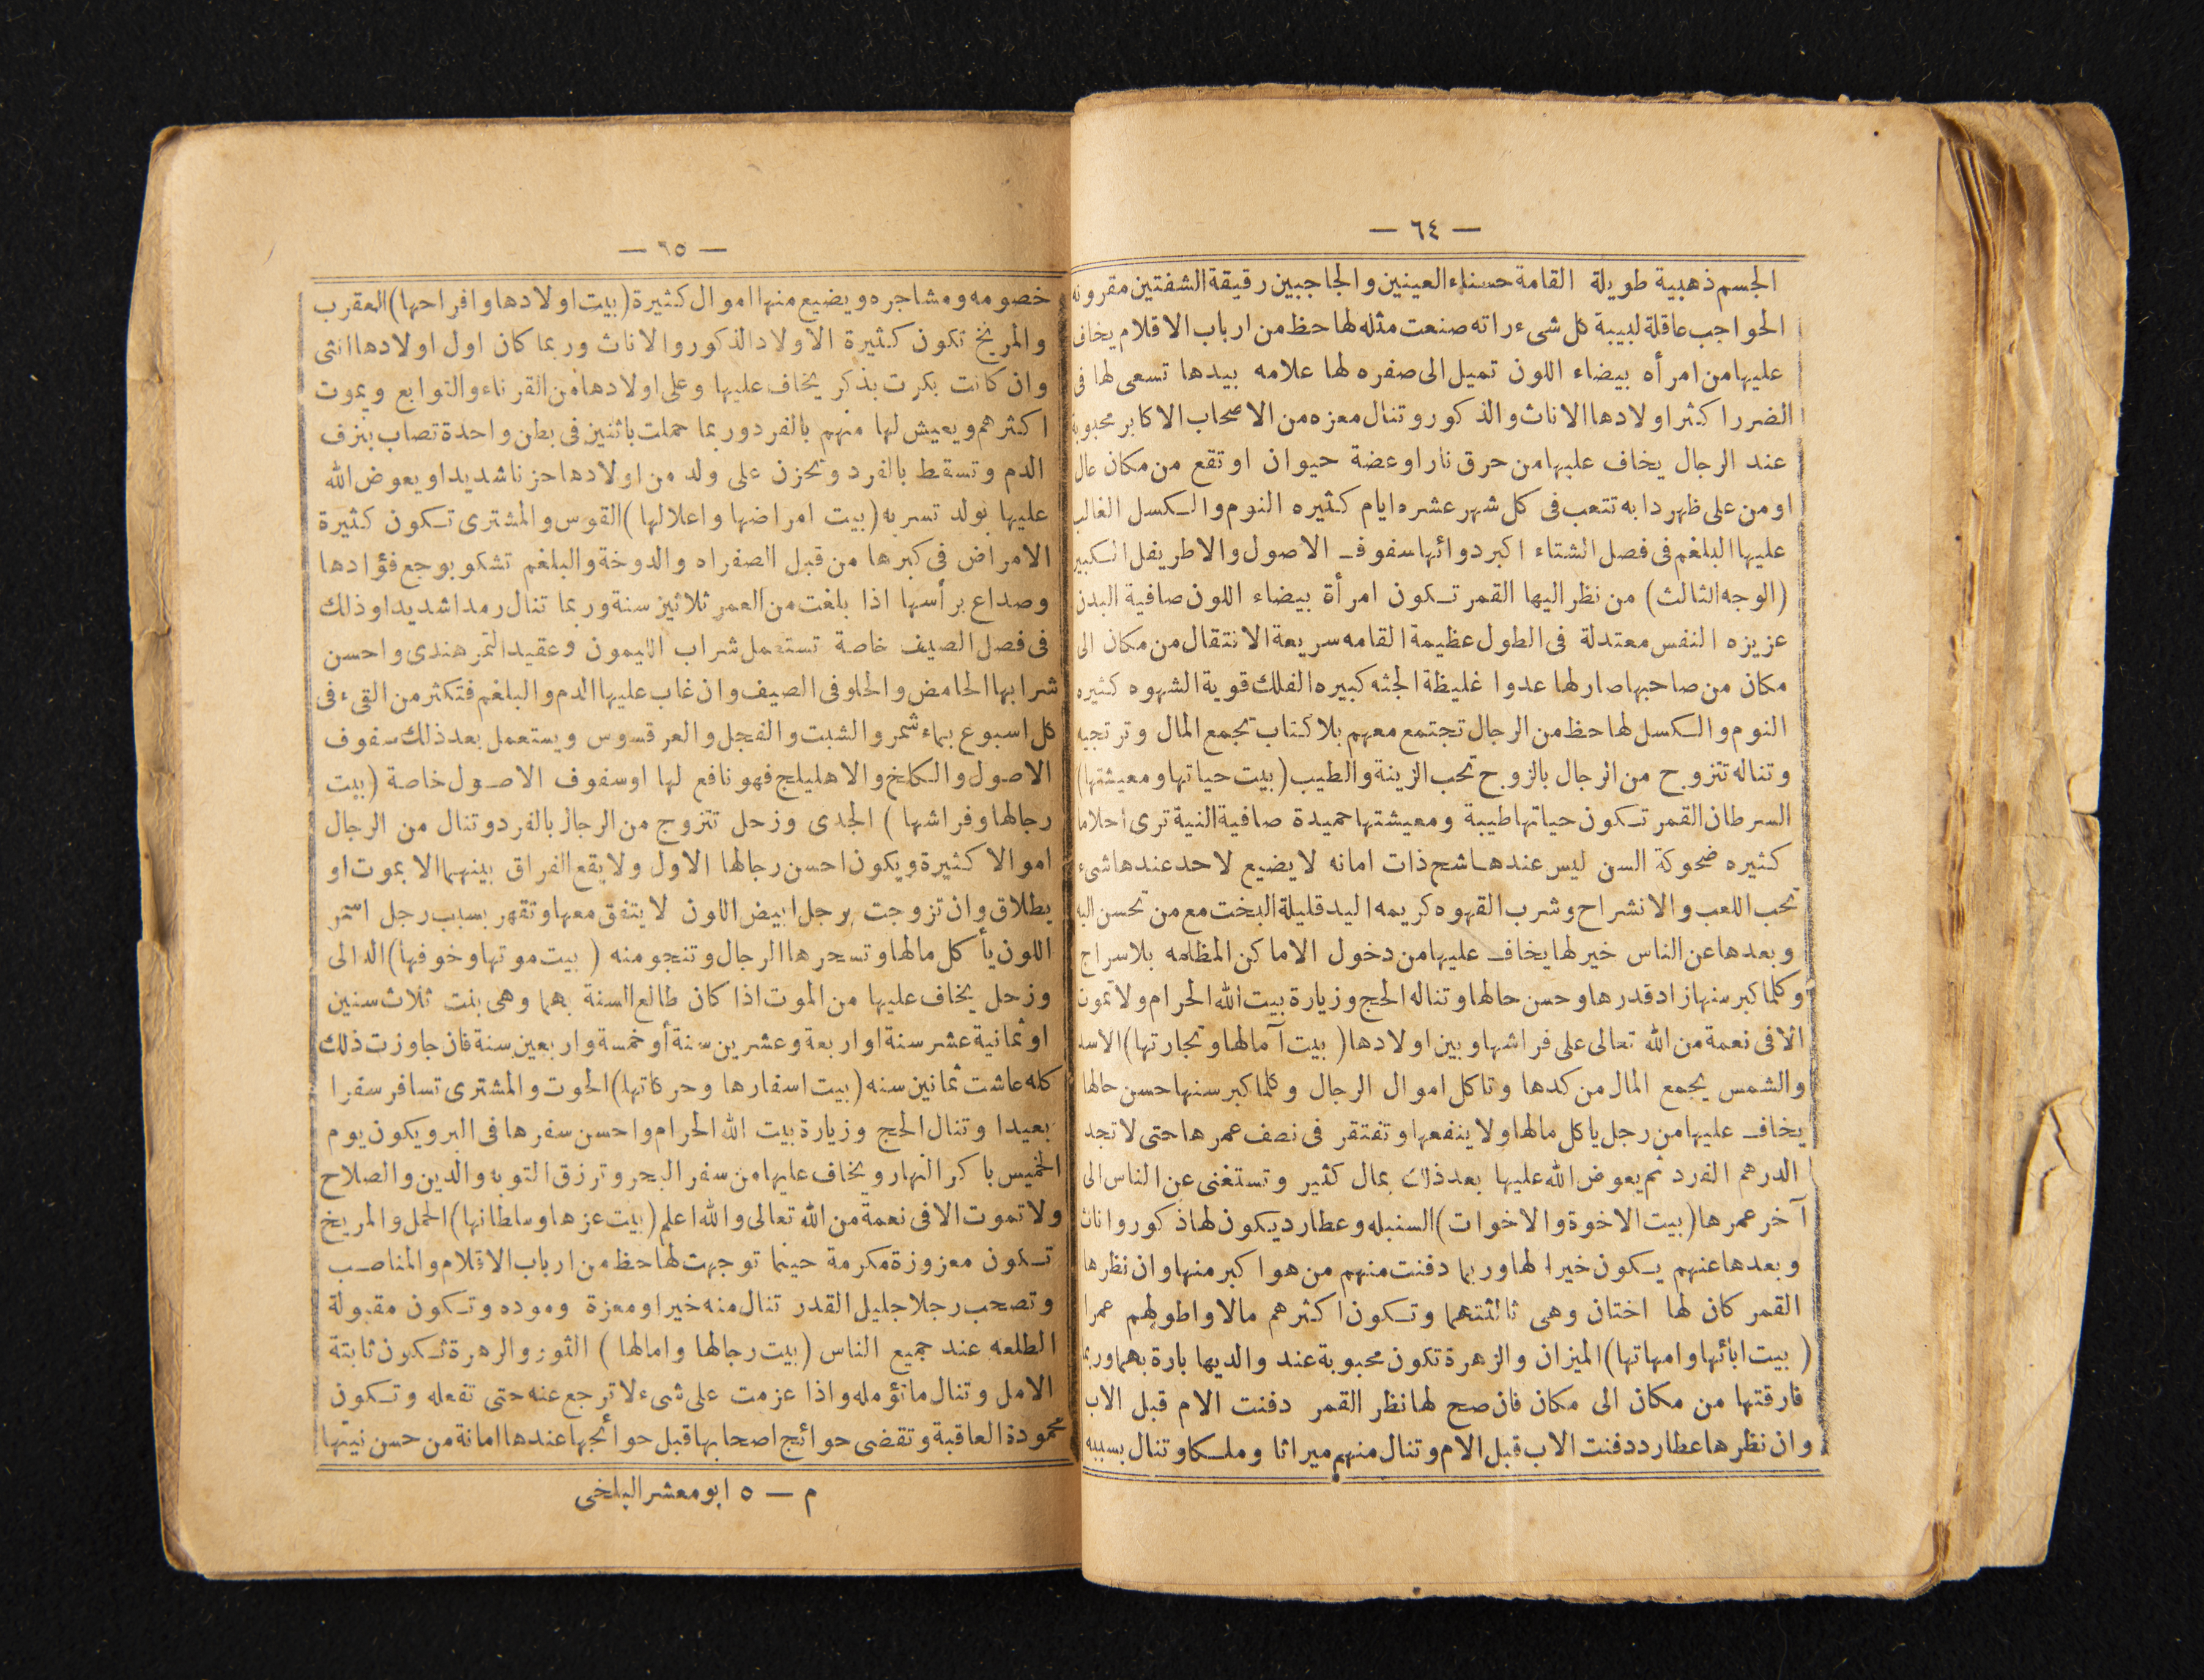 — ٦٤ —
الجسم ذهبية طويلة القامة حسناء العينين والحاجبين رقيقة الشفتين مقرونة
الحواجب عاقلة لبيبة كل شىء راته صنعت مثله لها حظ من ارباب الاقلام يخاف
عليها من امرأه بيضاء اللون تميل الى صفره لها علامه بيدها تسعى لها فى
الضرر اكثر اولادها الاناث والذكور وتنال معزه من الاصحاب الاكابر محبوبة
عند الرجال يخاف عليها من حرق نار اوعضة حيوان اوتقع من مكان عال
اومن على ظهر دابه تتعب فى كل شهر عشره ايام كثيره النوم والكسل الغالب
عليها البلغم فى فصل الشتاء اكبر دوائها سفوف الاصول والاطريفل الكبير
(الوجه الثالث) من نظر اليها القمر تكون امرأة بيضاء اللون صافية البدن
عزيزه النفس معتدلة فى الطول عظيمة القامه سريعة الانتقال من مكان الى
مكان من صاحبها صار لها عدوا غليظة الجثه كبيره الفلك قوية الشهوه كثيره
النوم والكسل لها حظ من الرجال تجتمع معهم بلا كتاب تجمع المال وترتجيه
وتناله تتزوج من الرجال بالزوج تحب الزينة والطيب (بيت حياتها ومعيشتها)
السرطان القمر تكون حياتها طيبة ومعيشتها حميدة صافية النية ترى احلاما
كثيره ضحوكة السن ليس عندها شح ذات امانه لا يضيع لاحد عندها شىء
تحب اللعب والانشراح وشرب القهوه كريمه اليد قليلة البخت مع من تحسن اليه
وبعدها عن الناس خير لها يخاف عليها من دخول الاماكن المظلمه بلا سراج
وكلما كبر سنها زاد قدرها وحسن حالها وتناله الحج وزيارة بيت الله الحرام ولا تموت
الا فى نعمة من الله تعالى على فراشها وبين اولادها (بيت آمالها وتجارتها) الاسد
والشمس يجمع المال من كدها وتاكل اموال الرجال وكلما كبر سنها حسن حالها
يخاف عليها من رجل ياكل مالها ولا ينفعها وتفتقر فى نصف عمرها حتى لا تجد
الدرهم الفرد ثم يعوض الله عليها بعد ذلك بمال كثير وتستغنى عن الناس الى
آخر عمرها (بيت الاخوة والاخوات) السنبله وعطارد يكون لها ذكور واناث
وبعدها عنهم يكون خيرا لها وربما دفنت منهم من هو اكبر منها وان نظرها
القمر كان لها اختان وهى ثالثتهما وتكون اكثرهم مالا واطولهم عمرا
(بيت ابائها وامهاتها) الميزان والزهرة تكون محبوبة عند والديها بارة بهما وربما
فارقتها من مكان الى مكان فان صح لها نظر القمر دفنت الام قبل الاب
وان نظرها عطارد دفنت الاب قبل الام وتنال منهم ميراثا وملكا وتنال بسببه
— ٦٥ —
خصومه ومشاجره ويضيع منها اموال كثيرة (بيت اولادها وافراحها) العقرب
والمريخ تكون كثيرة الاولاد الذكور والاناث وربما كان اول اولادها انثى
وان كانت بكرت بذكر يخاف عليها وعلى اولادها من القرناء والتوابع ويموت
اكثرهم ويعيش لها منهم بالفرد وربما حملت باثنين فى بطن واحدة تصاب بنزف
الدم وتسقط بالفرد وتحزن على ولد من اولادها حزنا شديدا ويعوض الله
عليها بولد تسر به (بيت امراضها واعلالها) القوس والمشترى تكون كثيرة
الامراض فى كبرها من قبل الصفراء والدوخة والبلغم تشكو بوجع فؤادها
وصداع برأسها اذا بلغت من العمر ثلاثين سنة وربما تنال رمدا شديدا وذلك
فى فصل الصيف خاصة تستعمل شراب الليمون وعقيد التمر هندى واحسن
شرابها الحامض والحلو فى الصيف وان غاب عليها الدم والبلغم فتكثر من القىء فى
كل اسبوع بماء شمر والشبت والفجل والعرقسوس ويستعمل بعد ذلك سفوف
الاصول والكلخ والاهليلج فهو نافع لها او سفوف الاصول خاصة (بيت
رجالها وفراشها) الجدى وزحل تتزوج من الرجال بالفرد وتنال من الرجال
اموالا كثيرة ويكون احسن رجالها الاول ولا يقع الفراق بينهما الا بموت او
بطلاق وان تزوجت برجل ابيض اللون لا يتفق معها وتقهر بسبب رجل اسمر
اللون يأكل مالها وتسحرها الرجال وتنجو منه (بيت موتها وخوفها) الدالى
وزحل يخاف عليها من الموت اذا كان طالع السنة بهما وهى بنت ثلاث سنين
او ثمانية عشر سنة او اربعة وعشرين سنة أو خمسة واربعين سنة فان جاوزت ذلك
كله عاشت ثمانين سنه (بيت اسفارها وحركاتها) الحوت والمشترى تسافر سفرا
بعيدا وتنال الحج وزيارة بيت الله الحرام واحسن سفرها فى البر ويكون يوم
الخميس باكر النهار ويخاف عليها من سفر البحر وترزق التوبه والدين والصلاح
ولا تموت الا فى نعمة من الله تعالى والله اعلم (بيت عزها وسلطانها) الحمل والمريخ
تكون معزوزة مكرمة حيثما توجهت لها حظ من ارباب الاقلام والمناصب
وتصحب رجلا جليل القدر تنال منه خيرا ومعزة وموده وتكون مقبولة
الطلعه عند جميع الناس (بيت رجالها وامالها) الثور والزهرة تكون ثابتة
الامل وتنال ماتؤمله واذا عزمت على شىء لا ترجع عنه حتى تفعله وتكون
محمودة العاقبة وتقضى حوائج اصحابها قبل حوائجها عندها امانة من حسن نيتها
م — ٥ ابو معشر البلخى